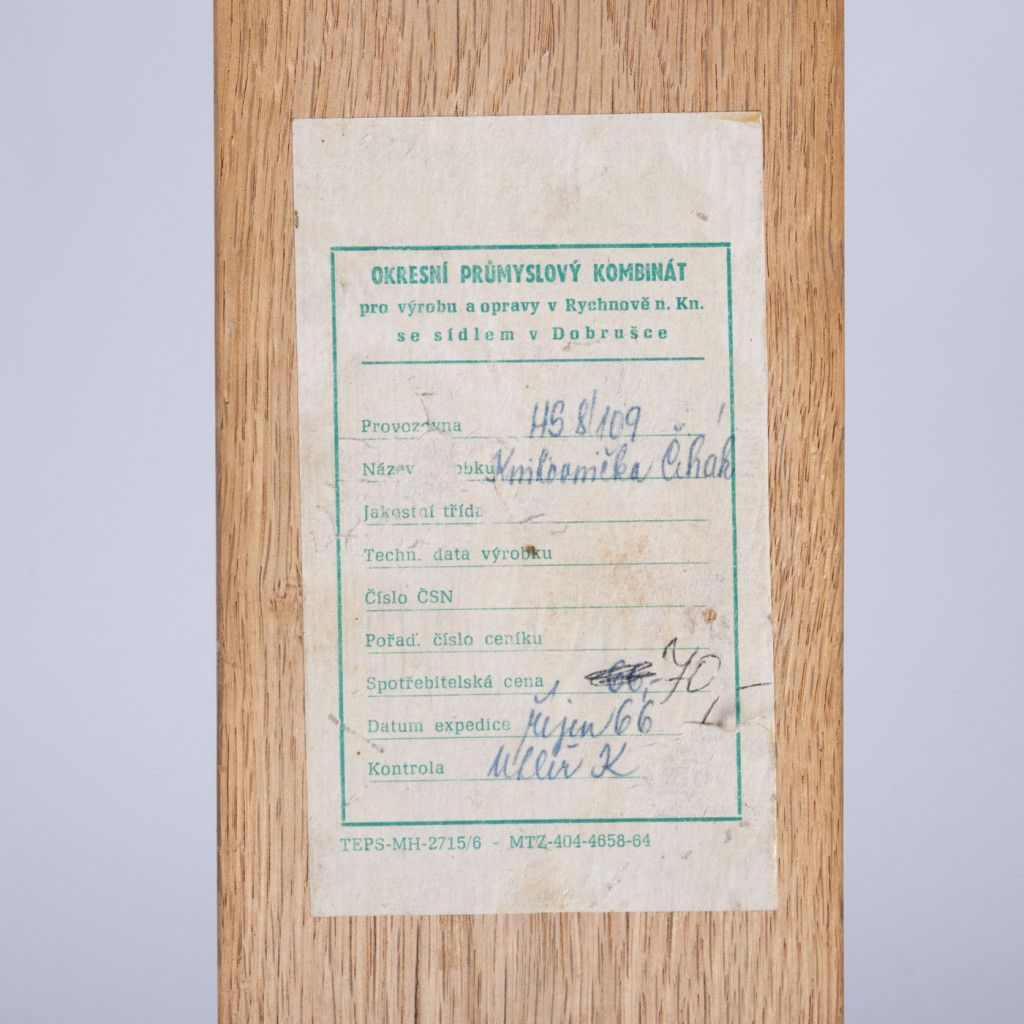 OKRESNÍ PRŮMYSLOVÝ KOMBINÁT
pro výrobu a opravy v Rychnově n. Kn.
se sídlem v Dobrušce
Provozovna HS 8/109
Název obku Knihovnička Čihák
Jakostní třída
Techn. data výrobku
Číslo ČSN
Pořad. číslo ceníku
Spotřebitelská cena 66,- 70,-
Datum expedice říjen 66
Kontrola K
TEPS-MH-2715/6 - MTZ-404-4658-64